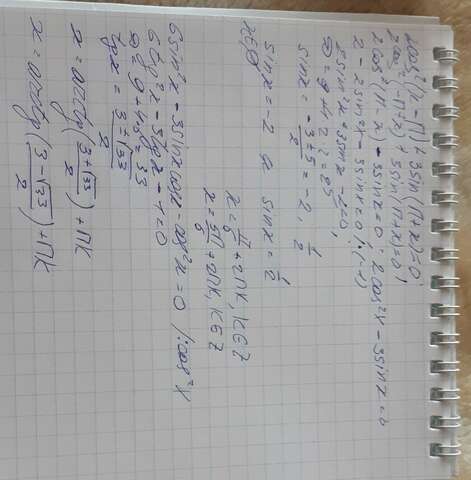 2cos²(x-П)+3sin(П+x)=0;
2cos²(-П+x)+3sin(П+x)=0;
2cos²(П-x)-3sinx=0; 2cos²x-3sinx=0
2-2sin²x-3sinx=0; ·(-1)
2sin²x+3sinx-2=0;
D=9+4·2·2=25
sinx=(-3±5)/2=-2, 1/2
sinx=-2 и sinx=1/2
x∈∅
x=П/6+2ПK, K∈Z
x=5П/6+2ПK, K∈Z
6sin²x-3sinxcosx-cos²x=0 /:cos²x
6tg²x-3tgx-1=0
D=9+4·6=33
tgx=(3±√33)/2
x=arctg((3+√33)/2)+ПK
x=arctg((3-√33)/2)+ПK